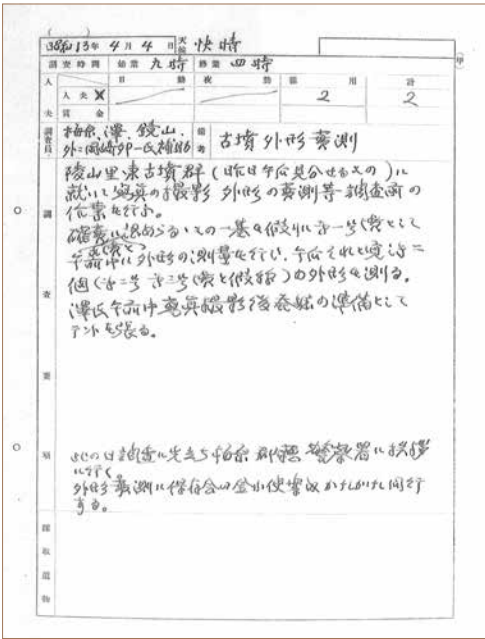 昭和13年 4月 4日 天候 快晴
調査時間 始業 九時 終業 四時
人夫 日勤 夜勤 雇用 計
人夫 2 2
賃金
調査員 梅原、澤、鏡山、
外ニ岡崎外一氏補助
備考 古墳外形実測
陵山里東古墳群(昨日午后見分せるもの)に
就いて写真の撮影 外形の実測等調査前の
作業を行ふ。
確実に認めらるゝもの一基を假りに第一号墳として
午前中に外形の測量を行い、午后それと
個(第二号 第三号墳と假称)の外形を測る。
澤氏午前中写真撮影後発掘の準備として
テントを張る。
調査要項
此の日調査に先立ち 警察署に挨拶
に行く。
外形実測に保存会の 同行
する。
採取遺物